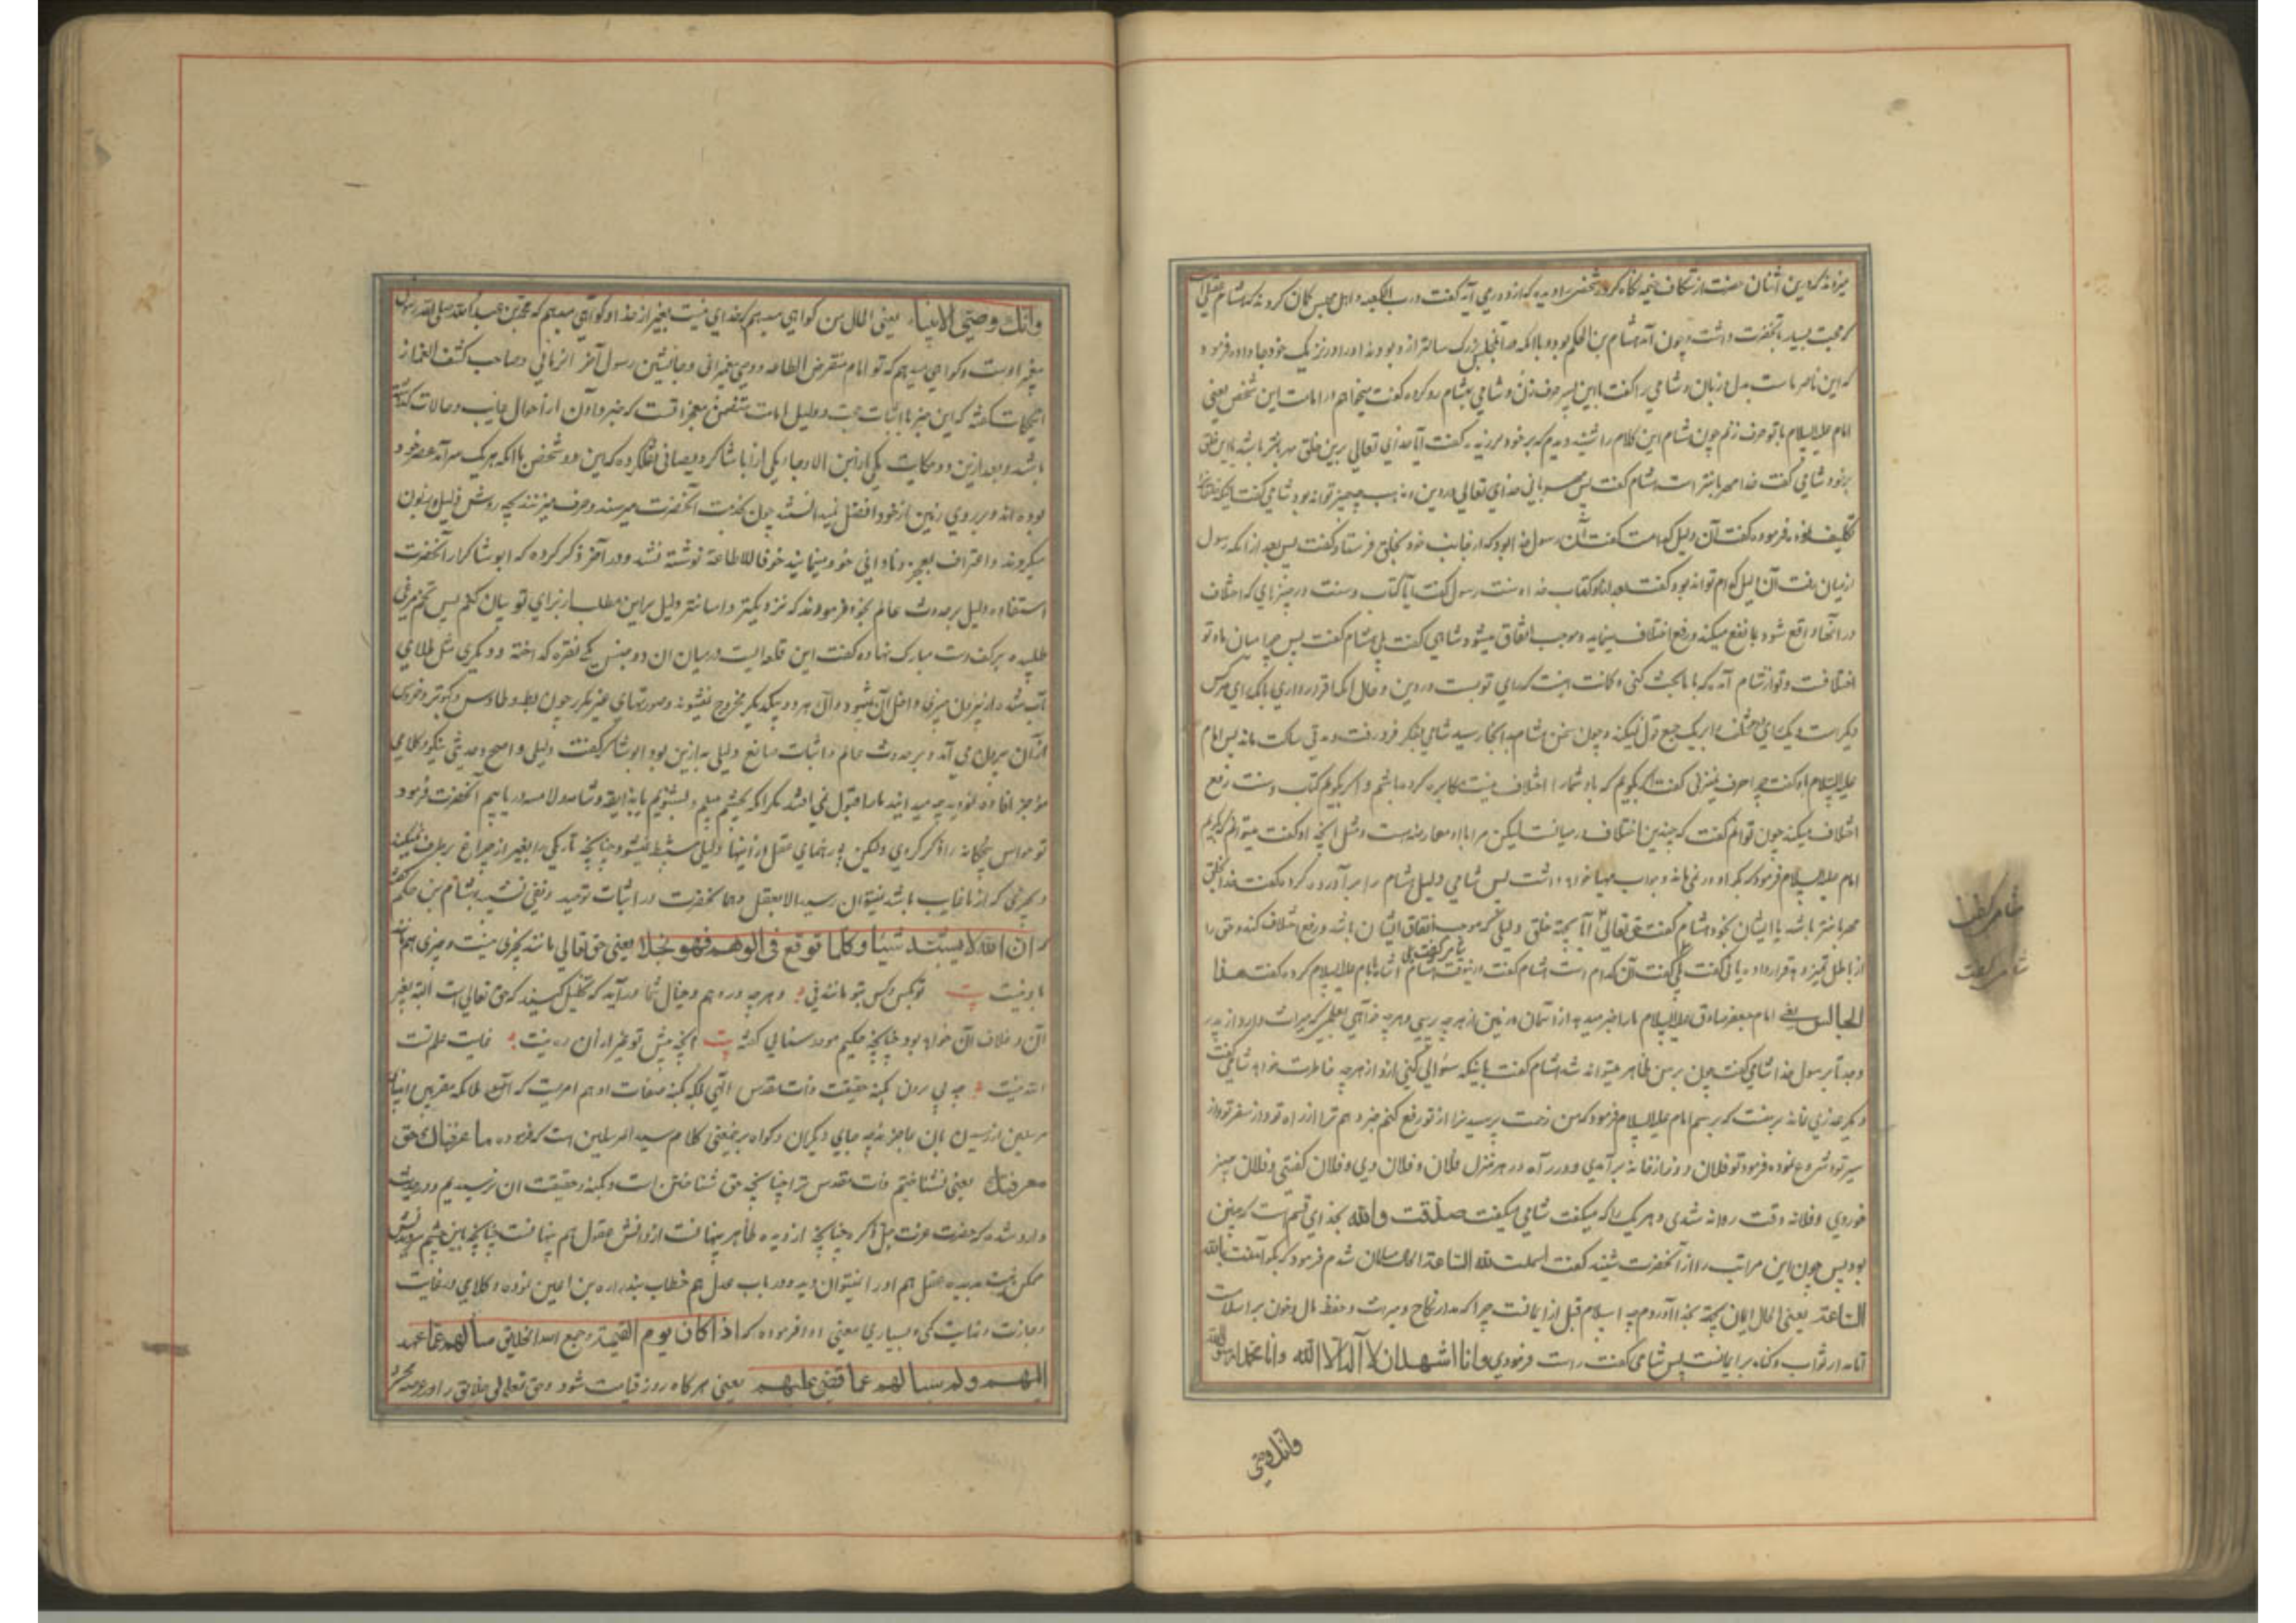 میزدند که درین اثنان حضرت از شکاف خیمه نگاه کرده شخصی را دید که از دور می آید گفت و رب الکعبه و اهل مجلس گمان کردند که هشام عقیل است
که محبت بسیار بآنحضرت داشت و چون آمد هشام بن الحکم بود و با آنکه صاحب مجلس بزرگ سالتر ازو بودند او را در نزدیک خود جا داد و فرمود
که این ناصر ماست بدل و زبان و شامی را گفت با این پسر حرف زن و شامی بهشام رو کرده گفت میخواهم در امامت این شخص یعنی
امام علیه السلام با تو حرف زنم چون هشام این کلام را شنید دیدم که بر خود لرزید گفت آیا خدای تعالی برین خلق مهربانتر باشد یا این خلق
بر خود شامی گفت خدا مهربانتر است هشام گفت پس مهربانی خدای تعالی در دین و مذهب چه چیز تواند بود شامی گفت
تکلیف نموده فرموده گفت آن دلیل کدام است گفت آن رسول خدا بود که از جانب خود بخلق فرستاد گفت پس بعد از آنکه رسول
از میان رفت آن دلیل کدام تواند بود گفت بعد از او کتاب خدا و سنت رسول گفت آیا کتاب و سنت در چیزهای که اختلاف
در آنجا واقع شود یا نفع میکند و رفع اختلاف مینماید و موجب اتفاق میشود شامی گفت بلی هشام گفت پس چرا میان ما و تو
اختلافست و تو از شام آمده که با ما بحث کنی و گمانت اینست که رای تو بست در دین و حال آنکه اقرار داری بآنکه رای هر کس
دیگر است و یک رای مختلف را بر یک جمع قول نمیکند و چون سخن هشام باینجا رسید شامی بفکر فرو رفت و مدتی ساکت ماند پس امام
علیه السلام باو گفت چرا حرف نمیزنی گفت اگر بگویم که ما و شما را اختلاف نیست مکابره کرده باشم و اگر بگویم کتاب و سنت رفع
اختلاف میکند چون توانم گفت که چندین اختلاف در میانست لیکن مرا با او معارضه هست و مثل آنچه او گفت میتوانم که بگویم
امام علیه السلام فرمود که بگو او در نمی ماند و جواب مهیا خواهد داشت پس شامی دلیل هشام را بر آورده کرد گفت خدا بخلق
مهربانتر باشد یا ایشان بخود هشام گفت حق تعالی آیا بجهة خلق دلیلی که موجب اتفاق ایشان باشد و رفع اختلاف کند و حق را
از باطل تمیز دهد قرار داده یا نی گفت بلی گفت آن کدام است هشام گفت درینوقت شامی گفت بلی هشام اشاره بامام علیه السلام کرده گفت هذا
الجالس یعنی امام جعفر صادق علیه السلام ما را خبر میدهد از آسمان و زمین از هر چه پرسی و هر چه خواهی بعلمی که میراث دارد از پدر
و جد تا برسول خدا شامی گفت چون بر من ظاهر میتواند شد هشام گفت بآنکه سؤالی کنی ازو از هر چه خاطرت خواهد شامی گفت
دیگر عذری نماند بر منست که بپرسم امام علیه السلام فرمود که من زحمت پرسیدن را از تو رفع کنم خبر دهم ترا از راه تو و از سفر تو و از
سیر تو و شروع نموده فرمود تو فلان روز از خانه برآمدی و در راه در هر منزل فلان و فلان دیدی و فلان گفتی و فلان چیز
خوردی و فلانه وقت روانه شدی و هر یک را که میگفت شامی میگفت صدقت والله بخدای قسم است که چنین
بود پس چون این مراتب را از آنحضرت شنید گفت اسلمت لله الساعة الحال مسلمان شدم فرمود که بگو آمنت بالله
الساعة یعنی الحال ایمان بجهة بخدا آوردم چه اسلام قبل از ایمانست چرا که مدار نکاح و میراث و حفظ مال و خون بر اسلامست
اما مدار ثواب و گناه بر ایمانست پس شامی گفت راست فرمودی وانا اشهد ان لا آله الا الله وان محمدا رسول الله
وانک وصی
شامی گفت
شامی گفت
وانک وصی الانبیاء یعنی الحال من گواهی میدهم که خدای نیست بغیر از خدا و گواهی میدهم که محمد بن عبدالله صلی الله رسول
پیغمبر اوست و گواهی میدهم که تو امام مفترض الطاعه و وصی پیغمبرانی و جانشین رسول آخر الزمانی و صاحب کشف الغمه از
این حکایت گفته که این خبر با اثبات حجت و دلیل امامت متضمن معجزاتست که خبر دادن از احوال غایب و حالات گذشته
باشد و بعد ازین دو حکایت یکی از ابن الاوجاء یکی از ابا شاکر دیصانی نقل کرده که این دو شخص با آنکه هر یک سرآمد عصر خود
بوده اند و بر روی زمین از خود افضل نمیدانستند چون بخدمت آنحضرت میرسند و حرف میزنند بچه روش ذلیل و زبون
میگردند و اعتراف بعجز و نادانی خود مینمایند خوفا للاطاعة نوشته نشد و در آخر ذکر کرده که ابو شاکر از آنحضرت
استفاده دلیل بر حدوث عالم نموده فرمودند که نزدیکتر و آسانتر دلیل بر این مطلب از برای تو بیان کنم پس تخم مرغی
طلبیده بر کف دست مبارک نهاده گفت این قلعه ایست در میان آن دو جنس یکی نقره گداخته و دیگری مثل طلای
آب شده از بیرون چیزی داخل آن نمیشود و آن هر دو بیکدیگر مخروج نمیشوند و صورتهای غیر مکرر چون بط و طاوس و کبوتر و خروس
از آن بیرون می آمد و بر حدوث عالم و اثبات صانع دلیلی به ازین بود ابو شاکر گفت دلیلی واضح و حدیثی نیکو و کلامی
موجز افاده نمودید چه میدانید ما را قبول نمی افتد مگر آنکه بچشم ببینم و بشنویم یا بذایقه و شامه و لامسه دریابیم آنحضرت فرمود
تو حواس پنجگانه را ذکر کردی ولیکن بی رهنمای عقل از اینها دلیلی مستنبط نمیشود چنانچه تاریکی را بغیر از چراغ بر طرف نمیکند
و چیزی که از ما غایب باشد نمیتوان رسید الا بعقل و هم آنحضرت در اثبات توحید و نفی تشبیه بهشام بن حکم گفته
که ان الله لا یشبه شیئا وکلما توقع فی الوهم فهو بخلافه یعنی حق تعالی مانند بچیزی نیست و چیزی هم مانند
باو نیست بیت تو بکس و کس بتو مانند نی و هر چه در وهم و خیال شما درآید که تخیل کنید که حق تعالی است البته بغیر
آن و خلاف آن خواهد بود چنانچه حکیم موحد سنائی گفته بیت آنچه پیش تو غیر از آن ره نیست غایت علم تست
الله نیست چه پی بردن بکنه حقیقت ذات مقدس الهی بلکه بکنه صفات او هم امریست که انبیا ملائکه مقربین
مرسلین از رسیدن بآن عاجزند چه جای دیگران و گواه برینمعنی کلام سید المرسلین است که فرموده ما عرفناک حق
معرفتک یعنی نشناختیم ذات مقدس ترا چنانچه حق شناختن است و بکنه و حقیقت آن نرسیدیم و در حدیث
وارد شده که حضرت عزت جل ذکره چنانچه از دیده ظاهر پنهانست از دانش عقول هم پنهانست چنانچه باین چشم سر دیدنش
ممکن نیست بدیده عقل هم او را نمیتوان دید و در باب عدل هم خطاب بزراره بن اعین نموده و کلامی در غایت
وجازت و نهایت کمی و بسیاری معنی ادا فرموده که اذا کان یوم القیمة وجمع الله الخلایق سألهم عما عهد
الیهم ولم یسألهم عما قضی علیهم یعنی هر گاه روز قیامت شود و حق تعالی خلایق را در عرصه محشر